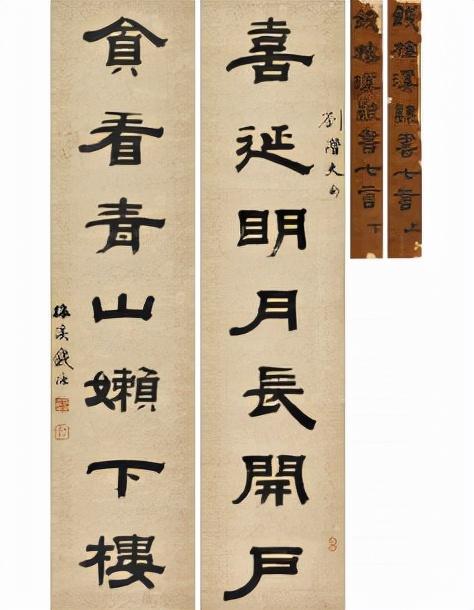 喜延眀月長開戶
劉潛夫句
貪看青山嬾下樓
梅溪錢泳
錢梅溪隸書七言 上
錢梅溪隸書七言 下